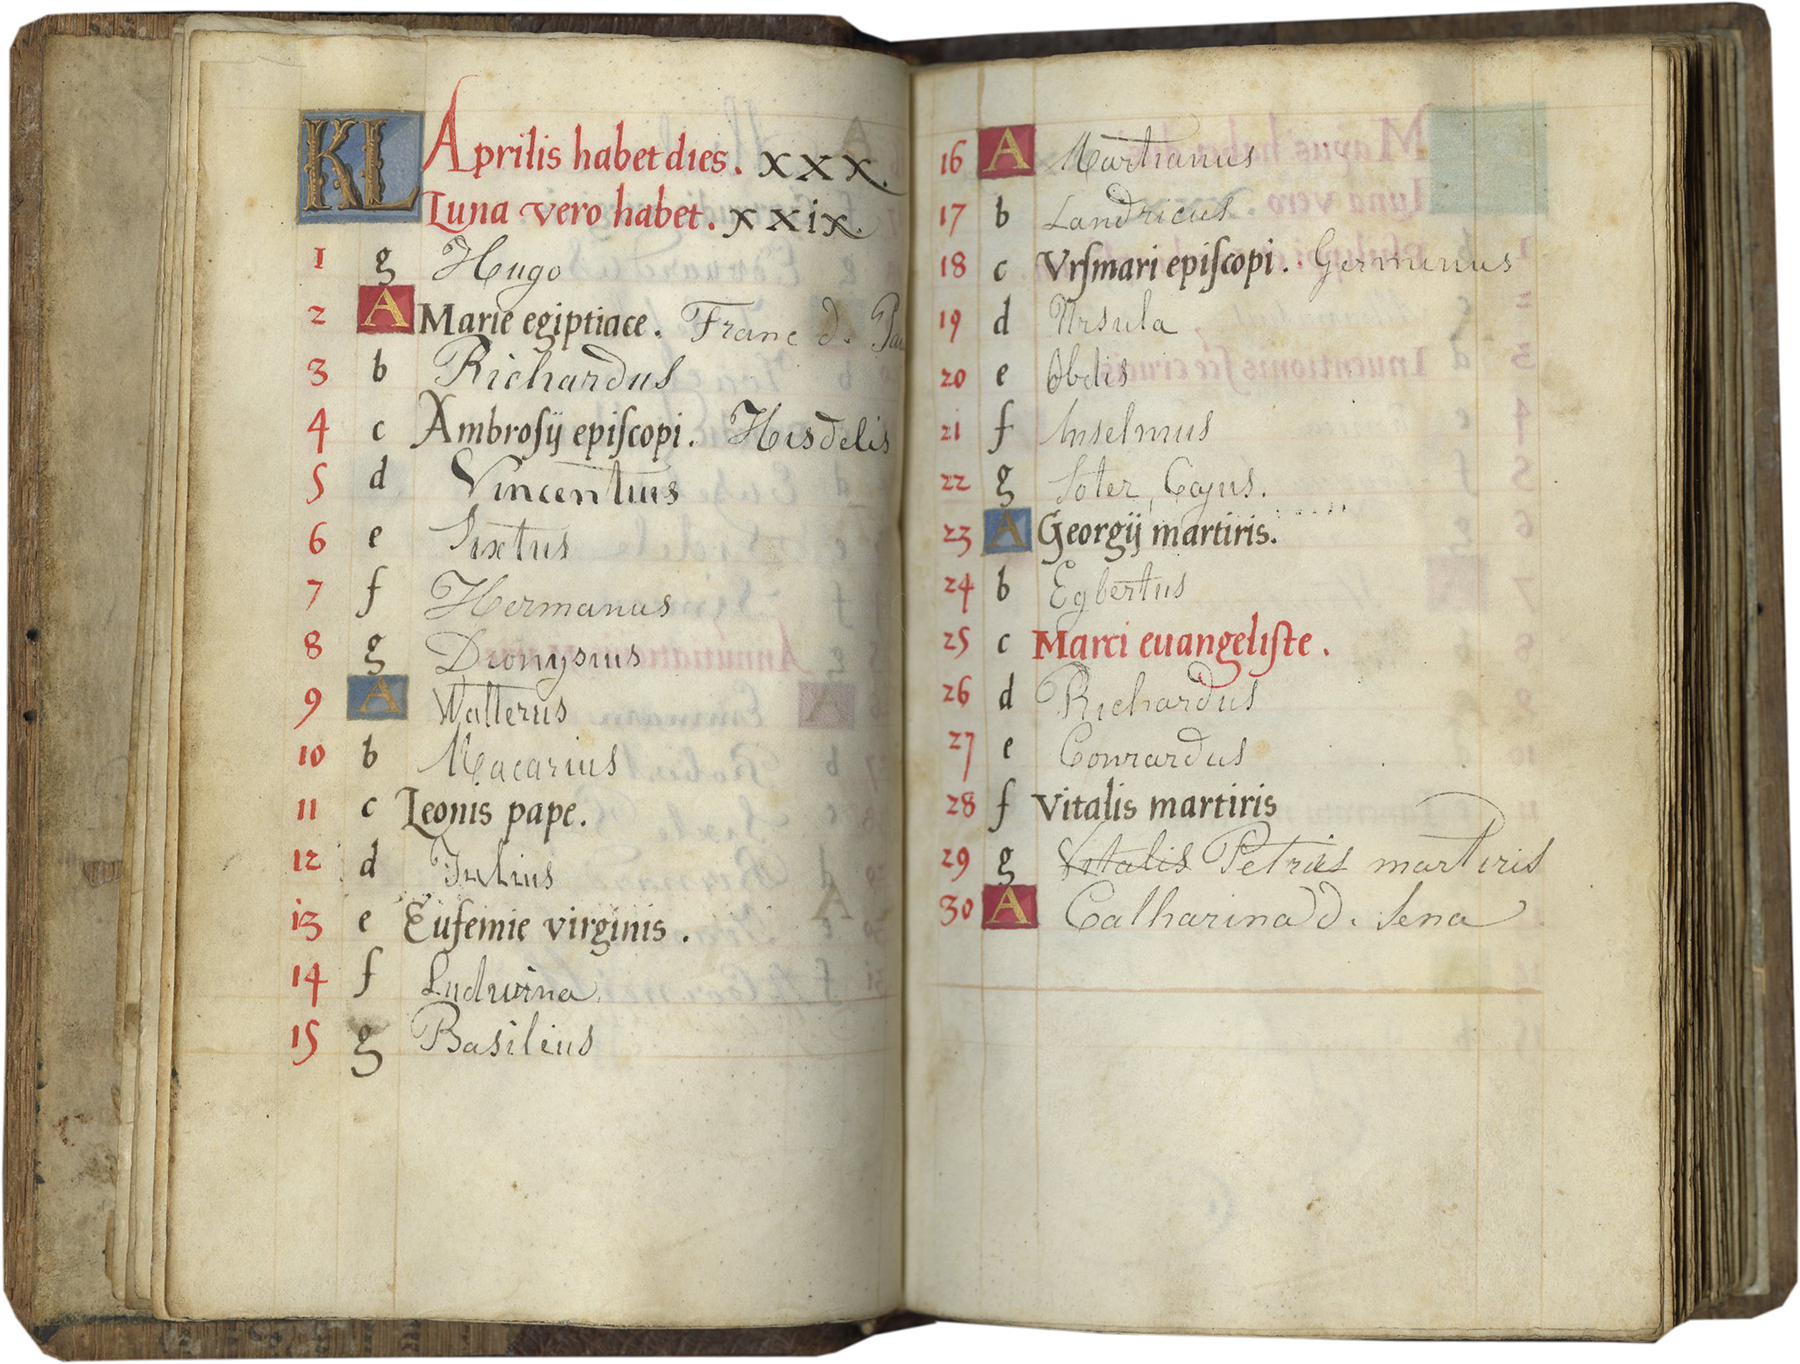 KL Aprilis habet dies. xxx.
Luna vero habet. xxix.
1 g Hugo
2 A Marie egiptiace. Franc d. Pau
3 b Richardus
4 c Ambrosij episcopi. Hisdelis
5 d Vincentius
6 e Sixtus
7 f Hermanus
8 g Dionysius
9 A Walterus
10 b Macarius
11 c Leonis pape.
12 d Julius
13 e Eufemie virginis.
14 f Ludwina
15 g Basileus
16 A Martianus
17 b Landricus
18 c Vrsmari episcopi. Germanus
19 d Ursula
20 e
21 f Anselmus
22 g Soter, Cajus.
23 A Georgij martiris.
24 b Egbertus
25 c Marci euangeliste.
26 d Richardus
27 e Conrardus
28 f Vitalis martiris
29 g Vitalis Petrus martiris
30 A Catharina d. Sena